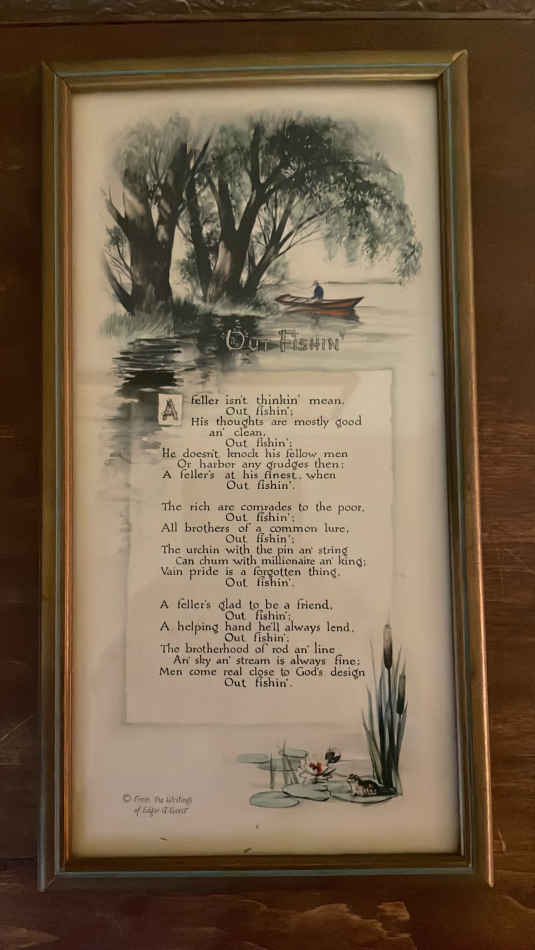 "Out Fishin'"
A feller isn't thinkin' mean,
Out fishin';
His thoughts are mostly good
an' clean,
Out fishin';
He doesn't knock his fellow men
Or harbor any grudges then;
A feller's at his finest, when
Out fishin'.
The rich are comrades to the poor,
Out fishin';
All brothers of a common lure,
Out fishin';
The urchin with the pin an' string
Can chum with millionaire an' king;
Vain pride is a forgotten thing,
Out fishin'.
A feller's glad to be a friend,
Out fishin';
A helping hand he'll always lend,
Out fishin';
The brotherhood of rod an' line
An' sky an' stream is always fine;
Men come real close to God's design
Out fishin'.
© From the Writings
of Edgar A. Guest